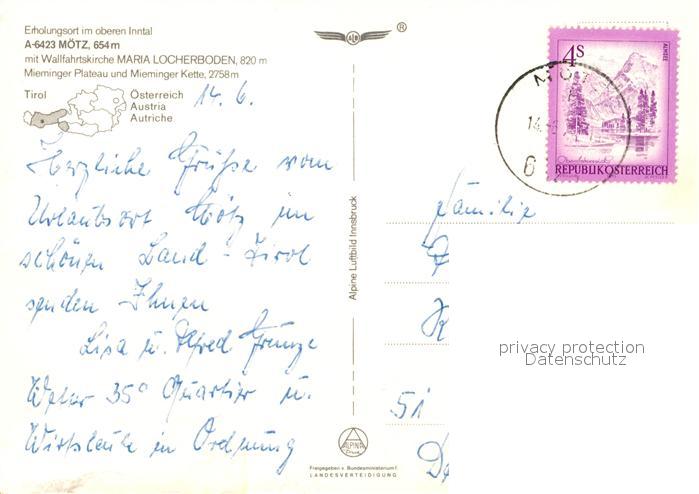 Erholungsort im oberen Inntal
A-6423 MÖTZ, 654 m
mit Wallfahrtskirche MARIA LOCHERBODEN, 820 m
Mieminger Plateau und Mieminger Kette, 2758 m
Tirol
Österreich
Austria
Autriche
14. 6.
Herzliche Grüße vom
Urlaubsort Mötz im
schönen Land - Tirol
senden Ihnen
Lisa u. Alfred
Wetter 35° Quartier u.
Wirtsleute in Ordnung
®
Alpine Luftbild Innsbruck
ALPINA
Druck
Freigegeben v. Bundesministerium f.
LANDESVERTEIDIGUNG
4S
ALMSEE
Oberösterreich
REPUBLIK ÖSTERREICH
Familie
51
privacy protection
Datenschutz